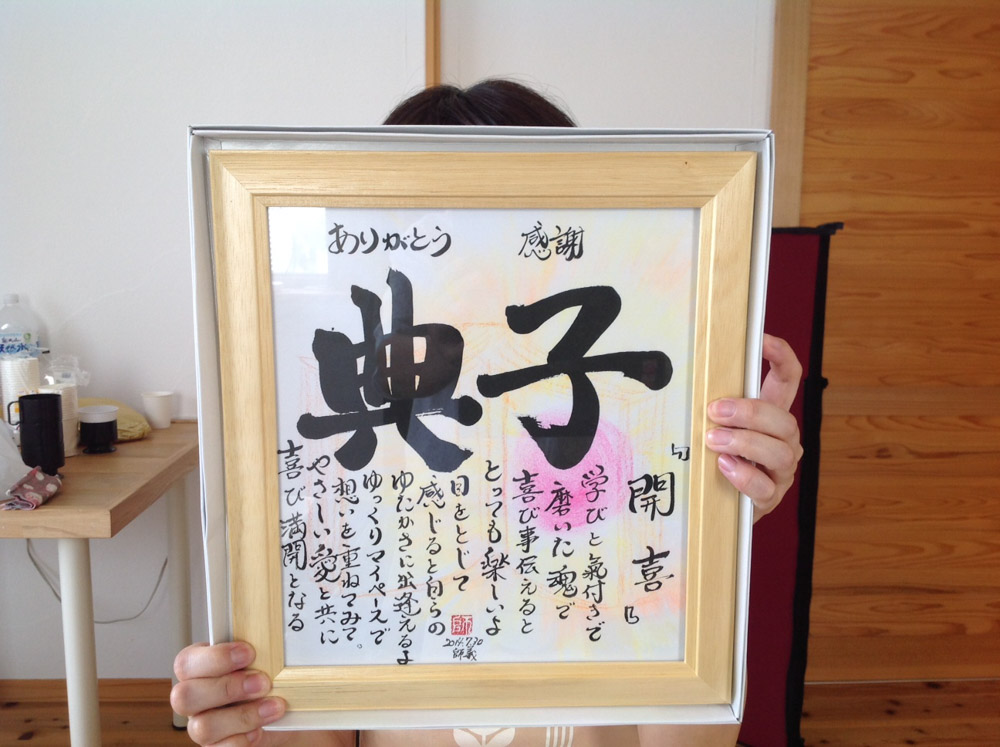 ありがとう
感謝
典子
「開喜」
学びと氣付きで
磨いた魂で
喜び事伝えると
とっても楽しいよ
目をとじて
感じると自らの
ゆたかさに出逢えるよ
ゆっくりマイペースで
想いを重ねてみて。
やさしい愛と共に
喜び満開となる
2014.7.30
師義